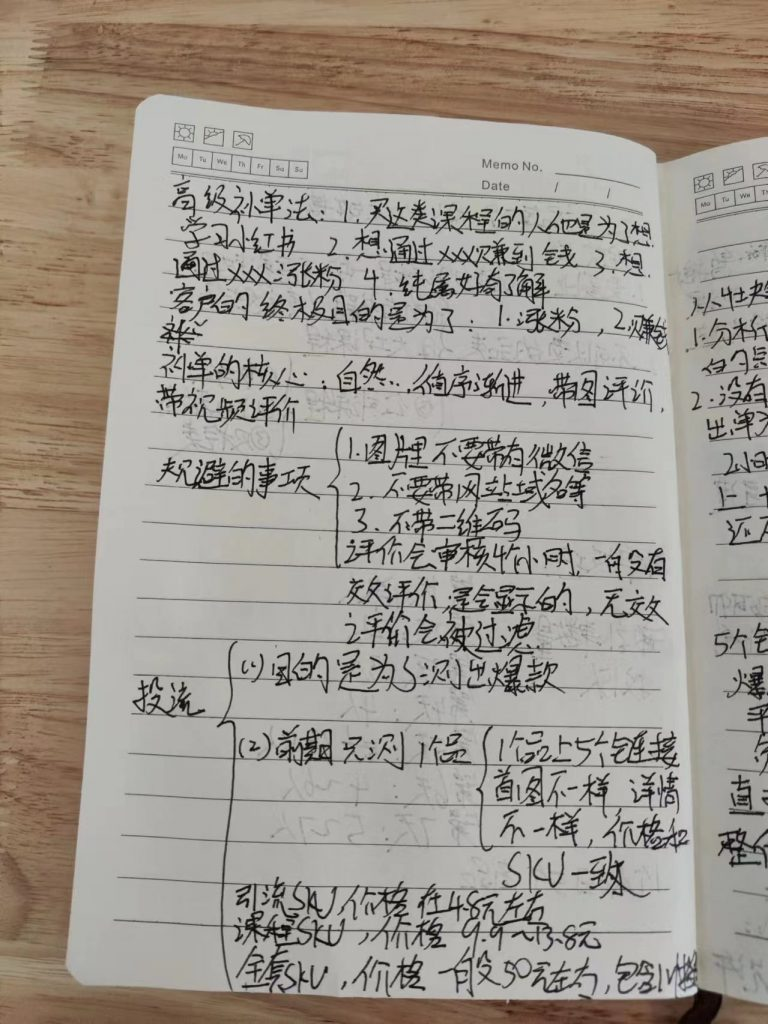 Mo Tu We Th Fr Sa Su
Memo No.
Date / /
高级补单法：1. 买这类课程的人他是为了想
学习小红书 2. 想通过xxx赚到钱 3. 想
通过xxx涨粉 4. 纯属好奇了解
客户的终极目的是为了：1.涨粉，2.赚钱
补单的核心：自然..，循序渐进，带图评价，
带视频评价
规避的事项
1.图片里不要带有微信
2. 不要带网站域名等
3. 不带二维码
评价会审核4个小时，一般没有
效评价，是会显示的，无效
评价会被过滤
投流
(1)目的是为了测出爆款
(2)前期只测1个品
1个品上5个链接
首图不一样 详情
不一样，价格和
SKU一致
引流SKU，价格在4.8元左右
课程SKU，价格9.9～13.8元
全套SKU，价格一般50元左右，包含
Mo Tu We Th
1.分析
2.没有
出单
5个
爆
平
直
整个